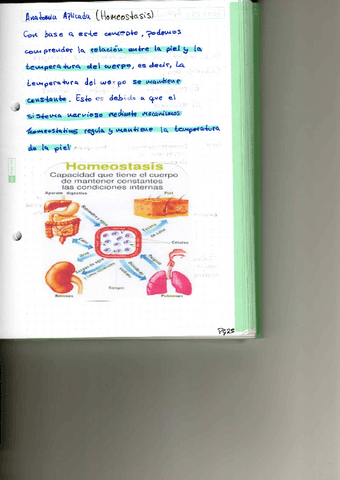 Anatomía Aplicada (Homeostasis)
Con base a este concepto, podemos
comprender la relación entre la piel y la
temperatura del cuerpo, es decir, la
temperatura del cuerpo se mantiene
constante. Esto es debido a que el
sistema nervioso mediante mecanismos
homeostatins regula y mantiene la temperatura
da la piel
Homeostasis
Capacidad que tiene el cuerpo
de mantener constantes
las condiciones internas
Aparato digestivo
Piel
Células
Riñones
Sangre
Pulmones
Pg25